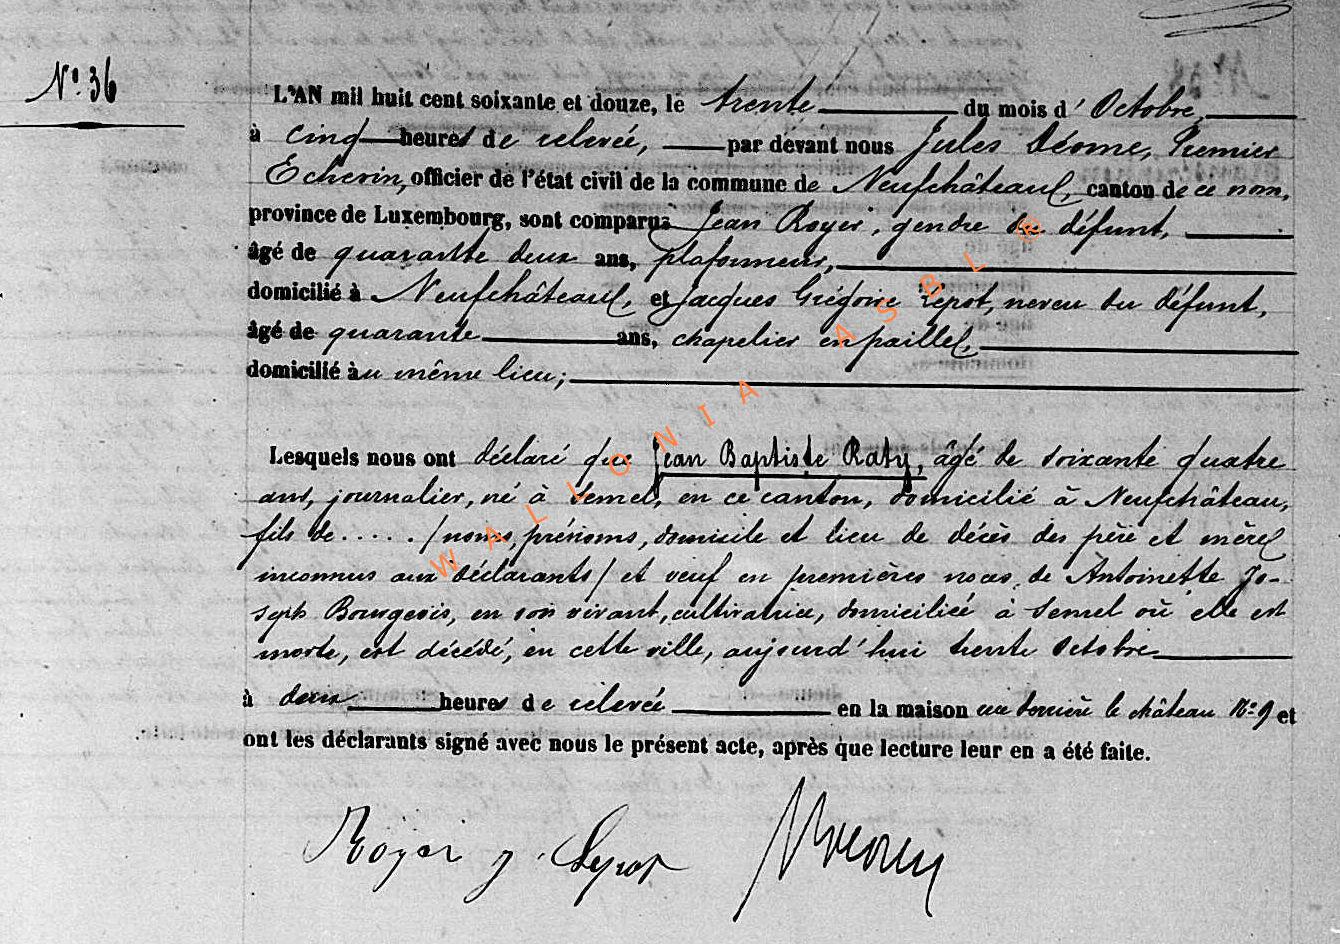 N° 36
L'AN mil huit cent soixante et douze, le trente du mois d'Octobre,
à cinq heures de relevée, par devant nous Jules Déome, Premier
Echevin, officier de l'état civil de la commune de Neufchâteau, canton de ce nom,
province de Luxembourg, sont comparus Jean Royer, gendre du défunt,
âgé de quarante deux ans, plafonneur,
domicilié à Neufchâteau, et Jacques Grégoire Lepot, neveu du défunt,
âgé de quarante ans, chapelier en paille,
domicilié au même lieu;
Lesquels nous ont déclaré que Jean Baptiste Raty, âgé de soixante quatre
ans, journalier, né à Semel, en ce canton, domicilié à Neufchâteau,
fils de ..... / noms, prénoms, domicile et lieu de décès des père et mère
inconnus aux déclarants / et veuf en premières noces, de Antoinette Jo-
seph Bourgeois, en son vivant, cultivatrice, domiciliée à Semel où elle est
morte, est décédé, en cette ville, aujourd'hui trente Octobre
à deux heures de relevée en la maison rue derrière le château N° 9 et
ont les déclarants signé avec nous le présent acte, après que lecture leur en a été faite.
Royer J. Lepot
WALLONIA ASBL ®